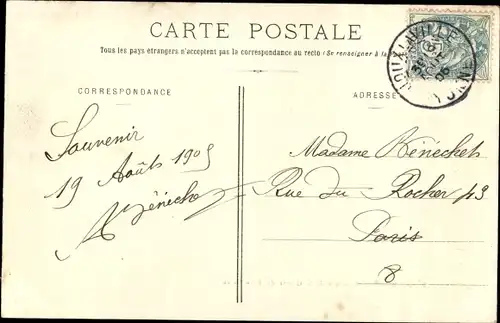 CARTE POSTALE
Tous les pays étrangers n'acceptent pas la correspondance au recto (Se renseigner à la
CORRESPONDANCE
ADRESSE
Souvenir
19 Août 1905
Madame Bénéchet
Rue du Rocher 43
Paris
8